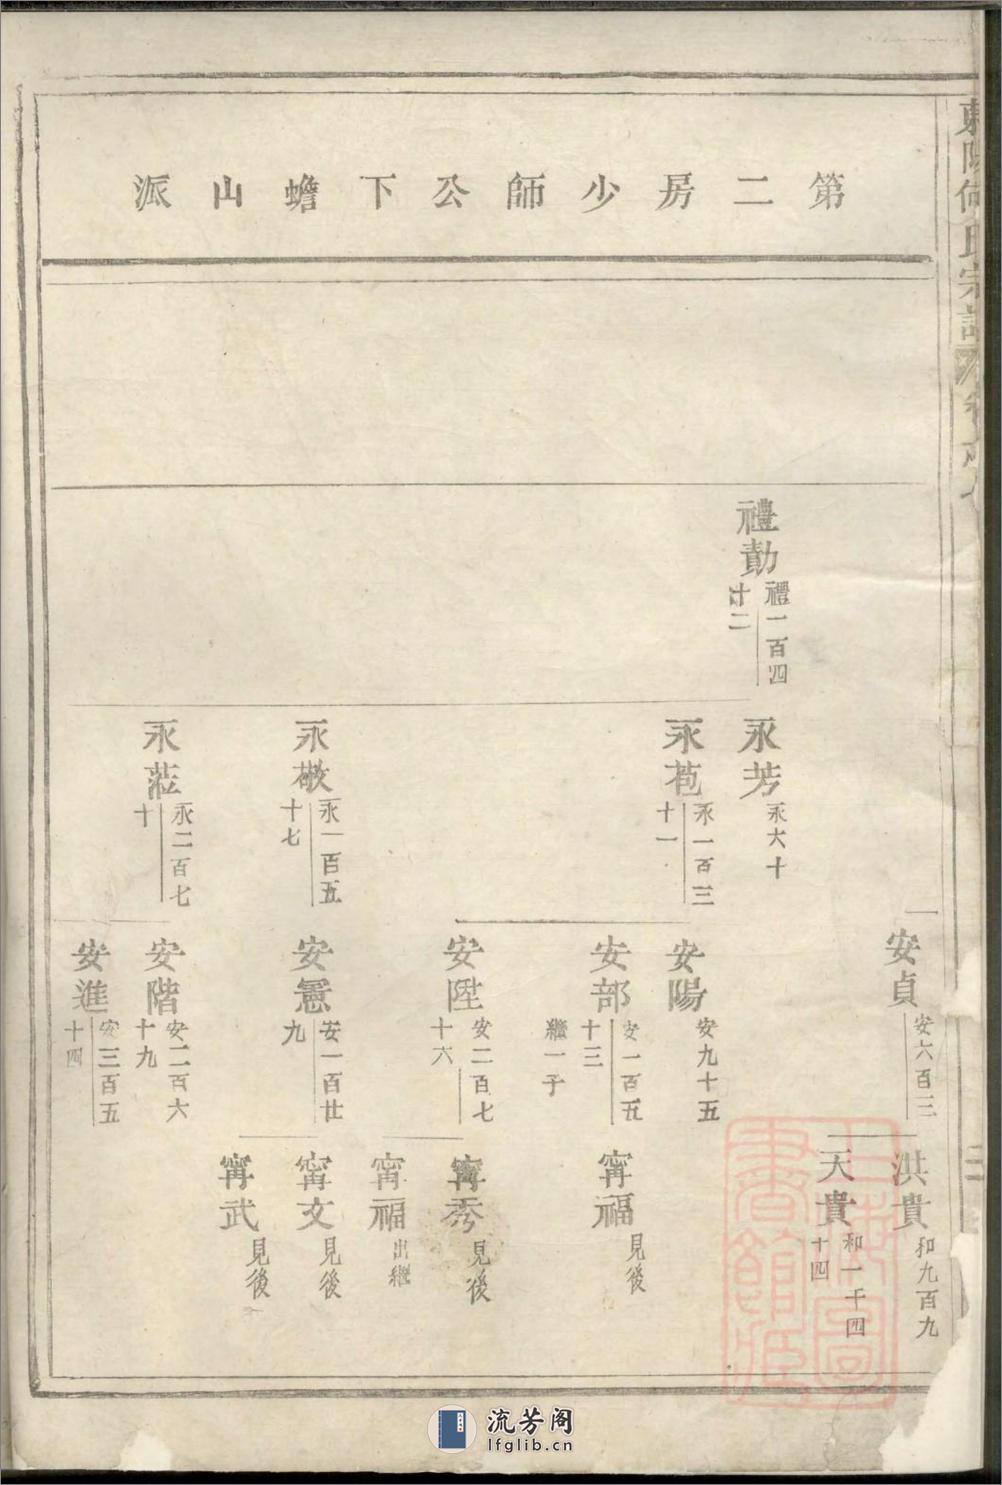 東陽何氏宗譜
第二房少師公下蟾山派
禮勣
禮一百四
十二
永芳
永六十
永苞
永一百三
十一
永𣘺
永一百五
十七
永蒞
永二百七
十
安貞
安六百三
安陽
安九十五
安部
安一百五
十三
繼一子
安陞
安二百七
十六
安憲
安一百廿
九
安階
安二百六
十九
安進
安三百五
十四
洪貴
和九百九
天貴
和一千四
十四
甯福
見後
甯秀
見後
甯福
出繼
甯文
見後
甯武
見後
流芳阁
lfglib.cn